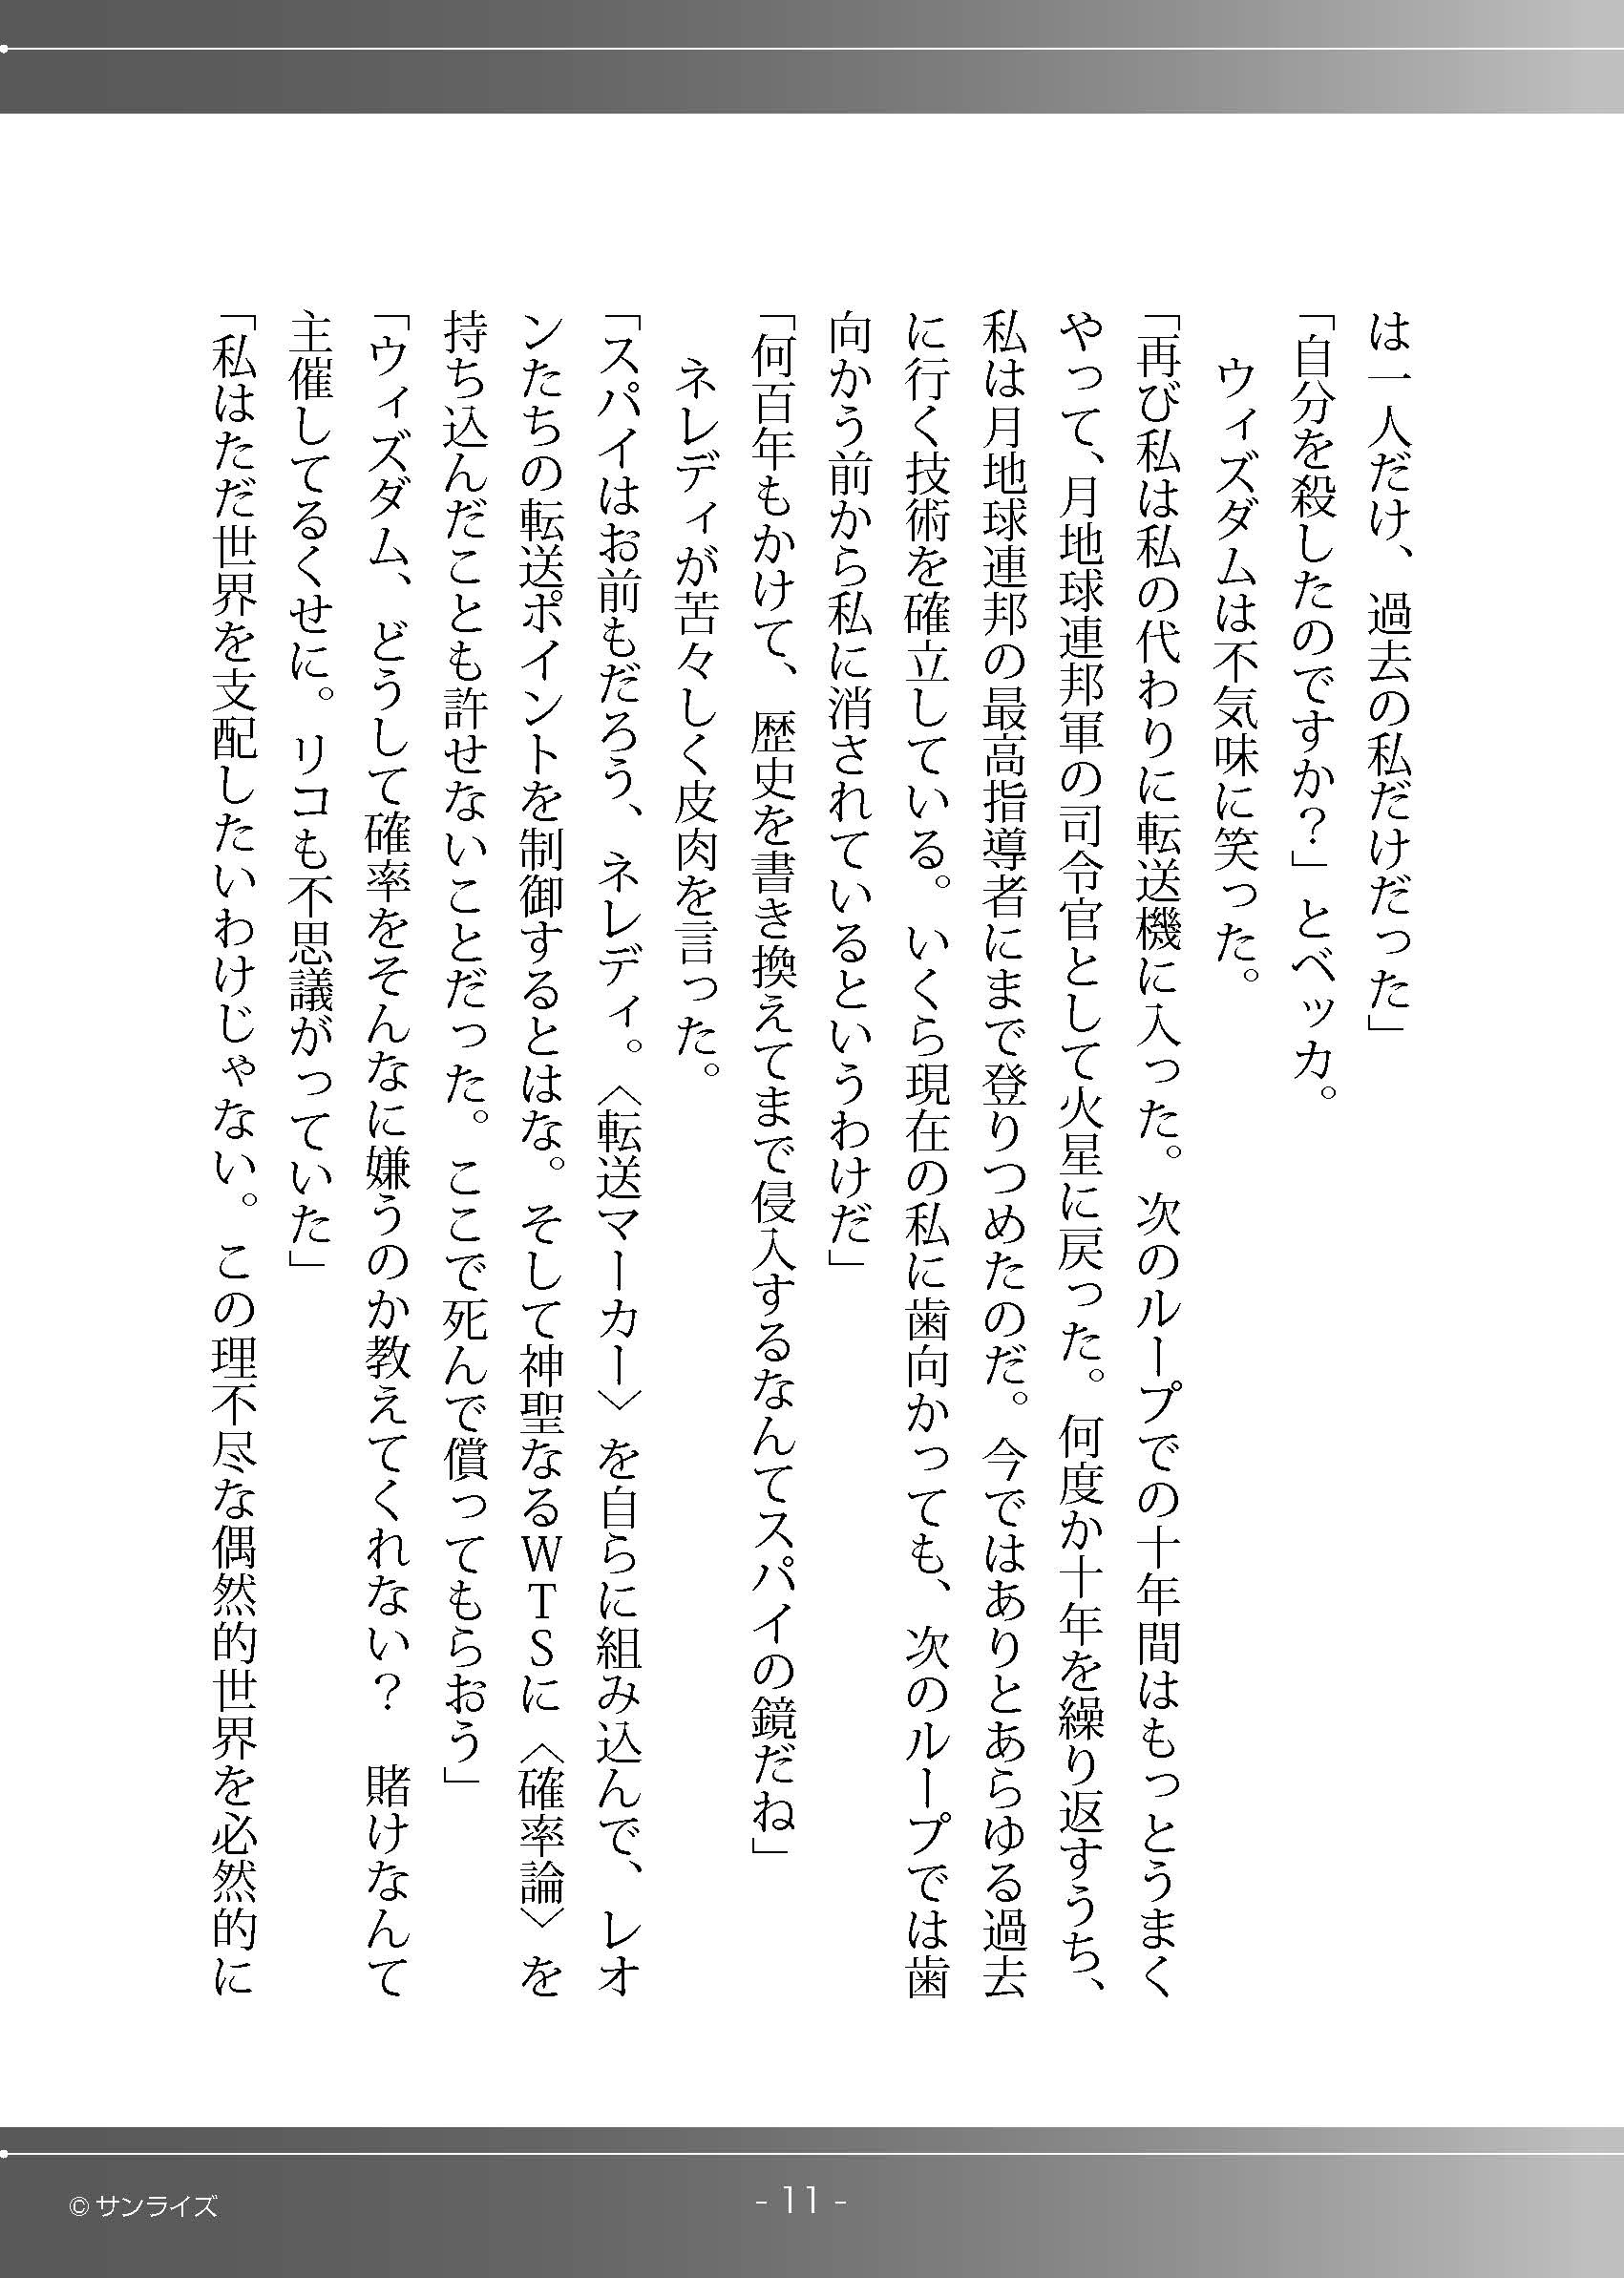 は一人だけ、過去の私だけだった」
「自分を殺したのですか？」とベッカ。
　ウィズダムは不気味に笑った。
「再び私は私の代わりに転送機に入った。次のループでの十年間はもっとうまく
やって、月地球連邦軍の司令官として火星に戻った。何度か十年を繰り返すうち、
私は月地球連邦の最高指導者にまで登りつめたのだ。今ではありとあらゆる過去
に行く技術を確立している。いくら現在の私に歯向かっても、次のループでは歯
向かう前から私に消されているというわけだ」
「何百年もかけて、歴史を書き換えてまで侵入するなんてスパイの鏡だね」
　ネレディが苦々しく皮肉を言った。
「スパイはお前もだろう、ネレディ。〈転送マーカー〉を自らに組み込んで、レオ
ンたちの転送ポイントを制御するとはな。そして神聖なるＷＴＳに〈確率論〉を
持ち込んだことも許せないことだった。ここで死んで償ってもらおう」
「ウィズダム、どうして確率をそんなに嫌うのか教えてくれない？　賭けなんて
主催してるくせに。リコも不思議がっていた」
「私はただ世界を支配したいわけじゃない。この理不尽な偶然的世界を必然的に
© サンライズ
- 11 -